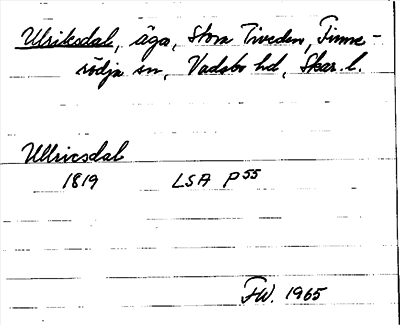 Ulriksdal, äga, Stora Tiveden, Finne-
rödja sn, Vadsbo hd, Skar. l.
Ullricsdal
1819 LSA P55
FW. 1965